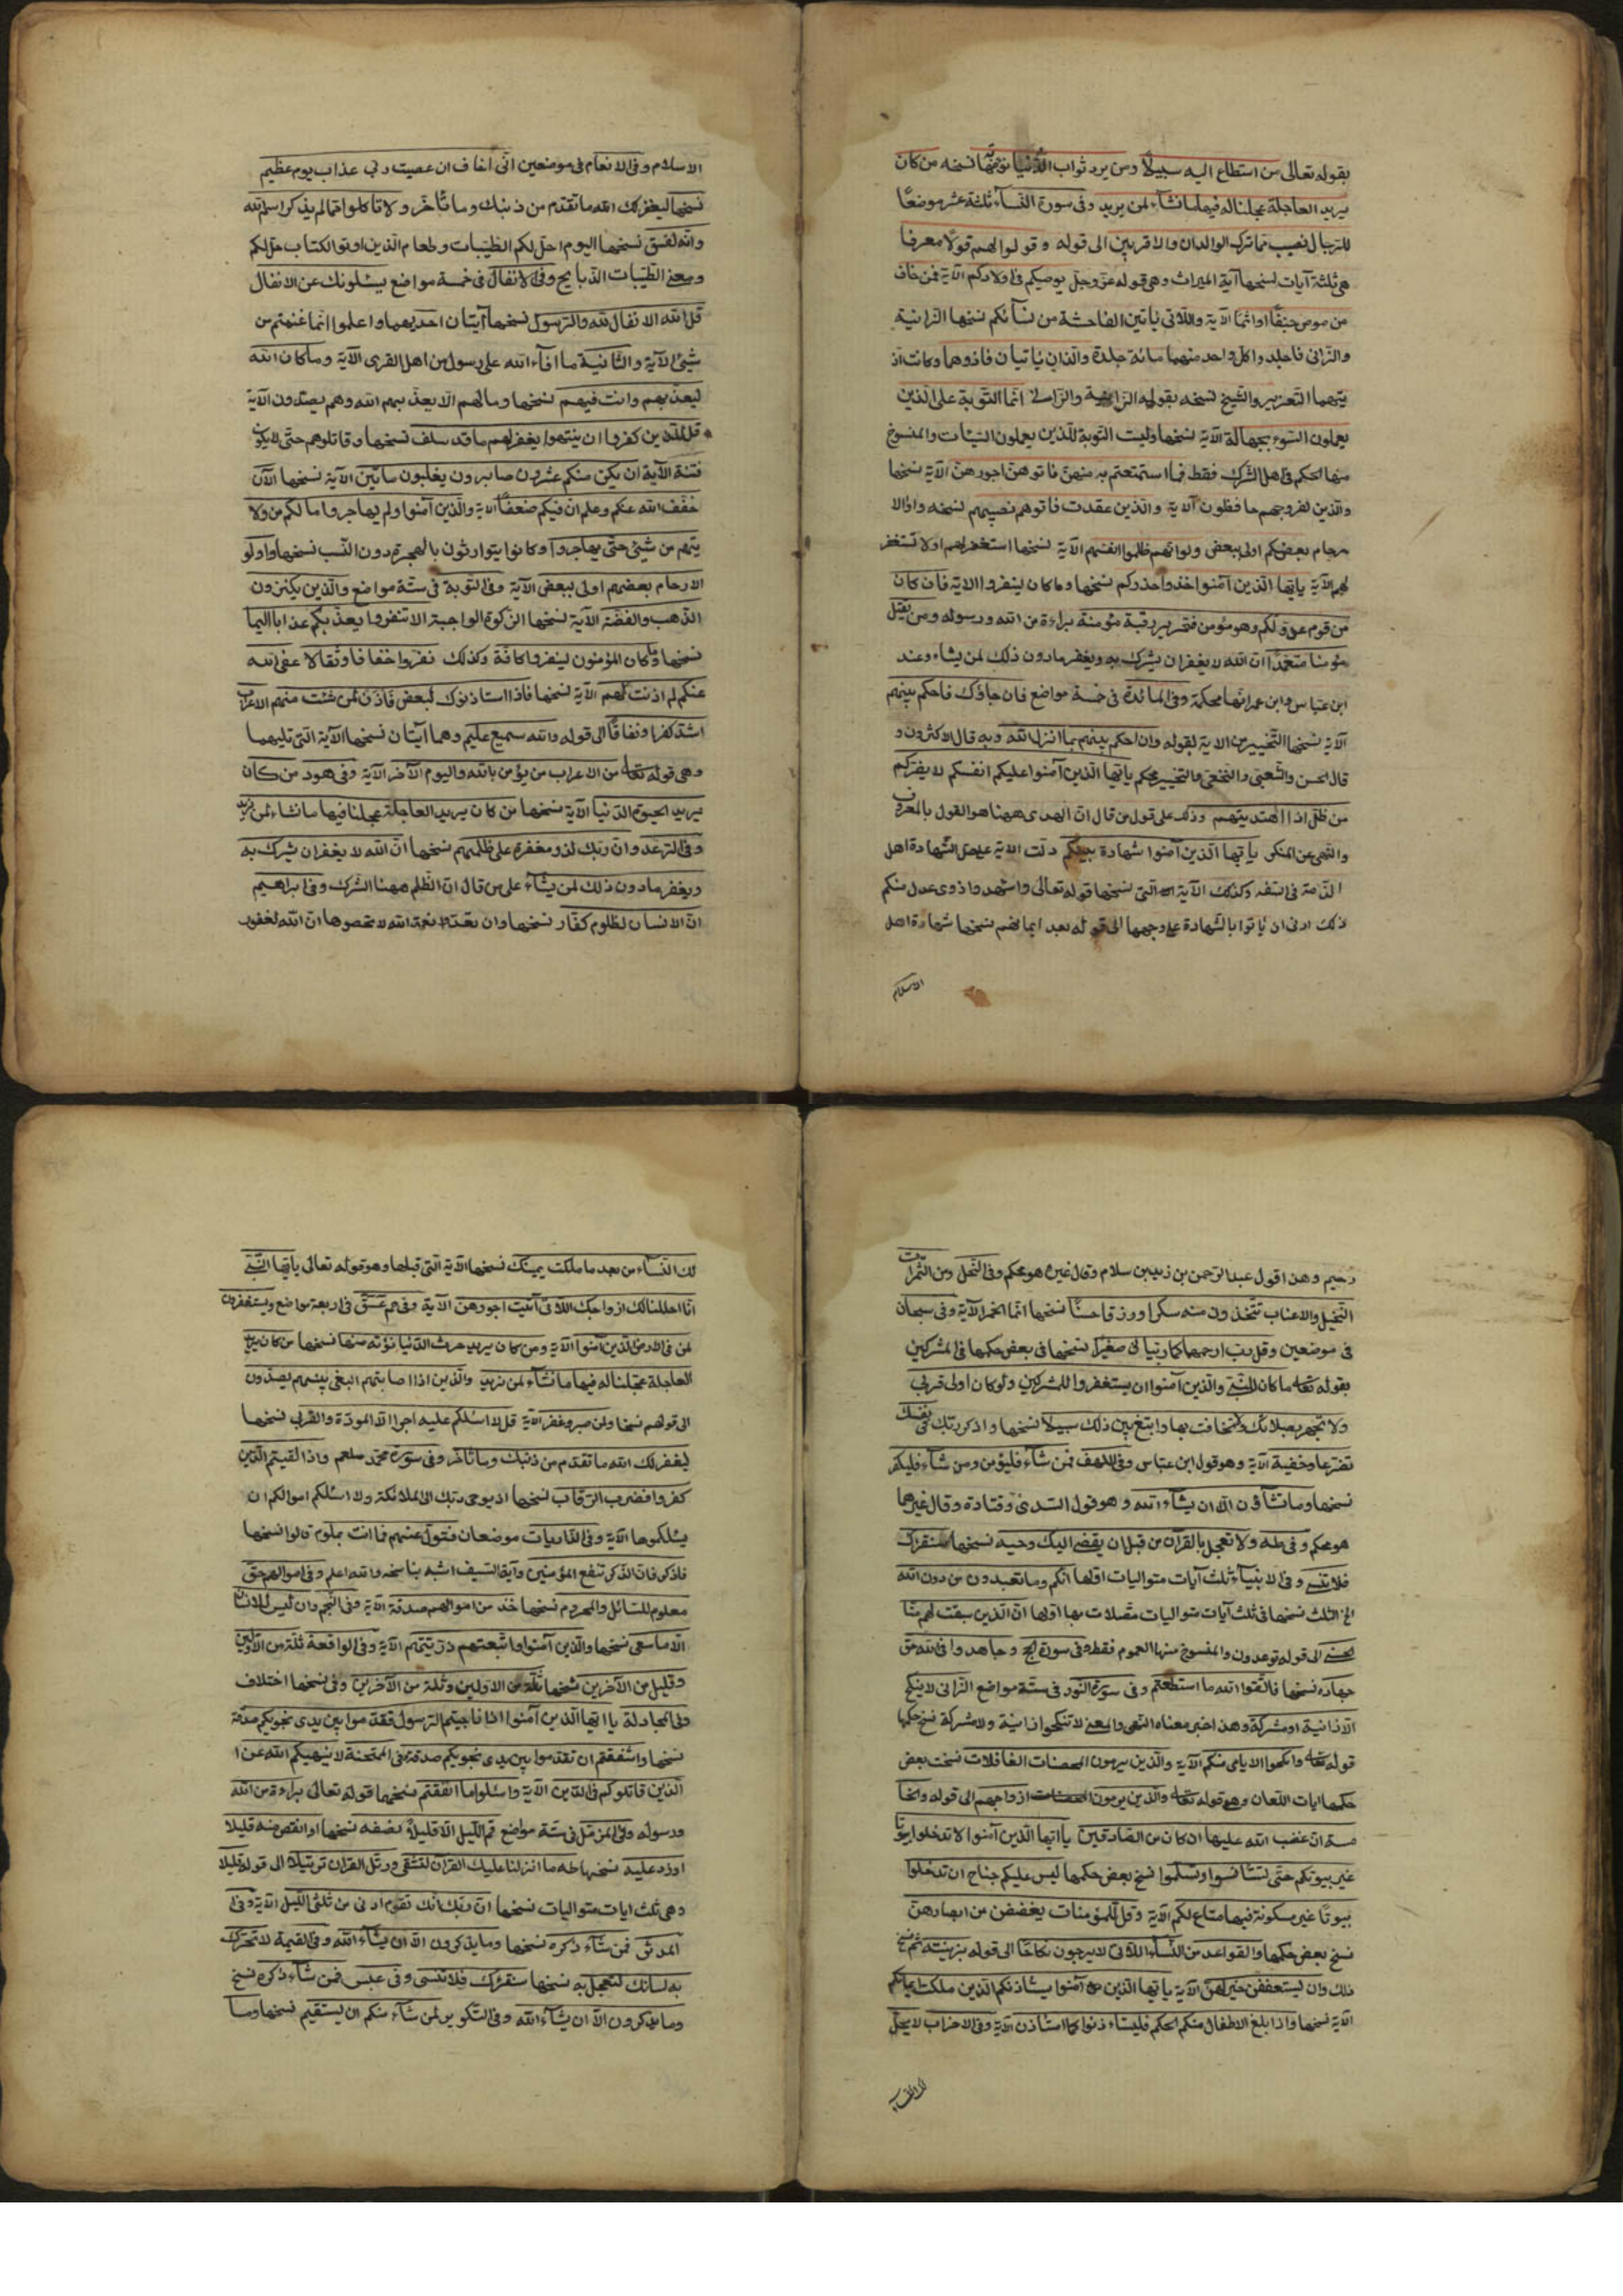 بقوله تعالى من استطاع اليه سبيلا ومن يرد ثواب الدنيا نؤته منها نسخه من كان
يريد العاجلة عجلنا له فيها ما نشاء لمن يريد وفى سورة النساء ثلثة عشر موضعًا
للرجال نصيب مما ترك الوالدان والاقربين الى قوله وقولوا لهم قولا معروفا
هى ثلثة آيات نسخها آية الميراث وهى قوله عز وجل يوصيكم فى اولادكم الآية فمن خاف
من موص جنفًا او اثمًا الآية واللاتى ياتين الفاحشة من نسآئكم نسخها الزانية
والزانى فاجلدوا كل واحد منهما مائة جلدة والذان ياتيان فاذوهما وكانت اذ
يعملون السوء بجهالة الآية نسخها وليست التوبة للذين يعملون السيئات والمنسوخ
منها الحكم فى اهل الشرك فقط فما استمتعتم به منهن فاتوهن اجورهن الآية نسخها
والذين لفروجهم حافظون الآية والذين عقدت فاتوهم نصيبهم نسخه واولا
رحام بعضكم اولى ببعض ولو انهم ظلموا انفسهم الآية نسخها استغفر لهم اولا تستغفر
لهم الآية يايها الذين آمنوا خذوا حذركم نسخها وما كان لينفروا الاية فان كان
من قوم عدو لكم وهو مؤمن فتحرير رقبة مؤمنة براءة من الله ورسوله ومن يقتل
مؤمنا متعمدًا ان الله لا يغفر ان يشرك به ويغفر ما دون ذلك لمن يشاء وعند
ابن عباس وابن عمر انها محكمة وفى المائدة فى خمسة مواضع فان جاؤك فاحكم بينهم
الآية نسخها التخيير من الاية لقوله وان احكم بينهم بما انزل الله وبه قال الاكثرون و
قال الحسن والشعبى والنخعى والتخيير محكم يايها الذين آمنوا عليكم انفسكم لا يضركم
من ظل اذا اهتديتم وذلك على قول من قال ان الهدى ههنا هو القول بالمعروف
والنهى عن المنكر يايها الذين آمنوا شهادة بينكم دلت الاية على الشهادة اهل
الذمة فى السفر وكذلك الآية التى نسخها قوله تعالى واشهدوا ذوى عدل منكم
ذلك ادنى ان ياتوا بالشهادة على وجهها الى قوله بعد ايمانهم نسخها شهادة اهل
الاسلام
الاسلام وفى الانعام فى موضعين انى اخاف ان عصيت ربى عذاب يوم عظيم
نسخها ليغفر لك الله ما تقدم من ذنبك وما تأخر ولا تاكلوا مما لم يذكر اسم الله
وانه لفسق نسخها اليوم احل لكم الطيبات وطعام الذين اوتوا الكتاب حل لكم
ومعنى الطيبات الذبايح وفى الانفال فى خمسة مواضع يسئلونك عن الانفال
قل الانفال لله والرسول نسخها آيتان احديهما واعلموا انما غنمتم من
شئ الآية والثانية ما افاء الله على رسول من اهل القرى الآية وما كان الله
ليعذبهم وانت فيهم نسخها وما لهم الا يعذبهم الله وهم يصدون الآية
قل للذين كفروا ان ينتهوا يغفر لهم ما قد سلف نسخها وقاتلوهم حتى لا يكون
فتنة الآية ان يكن منكم عشرون صابرون يغلبون مائتين الآية نسخها الآن
خفف الله عنكم وعلم ان فيكم ضعفًا الآية والذين آمنوا ولم يهاجروا ما لكم من ولا
يتهم من شئ حتى يهاجروا وكانوا يتوارثون بالهجرة دون النسب نسخها واولو
الارحام بعضهم اولى ببعض الآية وفى التوبة فى ستة مواضع والذين يكنزون
الذهب والفضة الآية نسخها الزكوة الواجبة الا تنفروا يعذبكم عذابا اليما
نسخها وما كان المؤمنون لينفروا كافة وكذلك نفروا خفافا وثقالا عفى الله
عنكم لم اذنت لهم الآية نسخها فاذا استاذنوك لبعض فأذن لمن شئت منهم الاعراب
اشد كفرا ونفاقًا الى قوله والله سميع عليم وهما آيتان نسخها الآية التى تليهما
وهى قوله تعالى من الاعراب من يؤمن بالله واليوم الآخر الآية وفى هود من كان
يريد الحيوة الدنيا الآية نسخها من كان يريد العاجلة عجلنا فيها ما نشاء لمن نريد
وفى الرعد وان ربك لذو مغفرة على ظلمهم نسخها ان الله لا يغفر ان يشرك به
ويغفر ما دون ذلك لمن يشاء على من قال ان الظلم ههنا الشرك وفى ابراهيم
ان الانسان لظلوم كفار نسخها وان تعدوا نعمة الله لا تحصوها ان الله لغفور
رحيم وهذا قول عبد الرحمن بن زيد بن سلام وقال غيره هو محكم وفى النحل ومن الثمرات
النخيل والاعناب تتخذون منه سكرا ورزقا حسنًا نسخها انما الخمر الآية وفى سبحان
فى موضعين وقل رب ارحمهما كما ربيانى صغيرًا نسخها فى بعض حكمها فى المشركين
بقوله تعالى ما كان للنبى والذين آمنوا ان يستغفروا للمشركين ولو كان اولى قربى
ولا تجهر بصلاتك ولا تخافت بها وابتغ بين ذلك سبيلا نسخها واذكر ربك فى نفسك
تضرعا وخفية الآية وهو قول ابن عباس وفى الكهف فمن شاء فليؤمن ومن شاء فليكفر
نسخها وما تشاؤن الا ان يشاء الله وهو قول السدى وقتادة وقال غيرهما
هو محكم وفى طه ولا تعجل بالقرآن من قبل ان يقضى اليك وحيه نسخها سنقرئك
فلا تنسى وفى الانبياء ثلث آيات متواليات اولها انكم وما تعبدون من دون الله
الخ الثلث نسخها فى ثلث آيات متواليات متصلات بها اولها ان الذين سبقت لهم منا
الحسنى الى قوله توعدون والمنسوخ منها العموم فقط وفى سورة الحج وجاهدوا فى الله حق
جهاده نسخها فاتقوا الله ما استطعتم وفى سورة النور فى ستة مواضع الزانى لا ينكح
الا زانية او مشركة وهذا خبر معناه النهى والمعنى لا تنكحوا زانية ولا مشركة نسخ حكمها
قوله تعالى وانكحوا الايامى منكم الآية والذين يرمون المحصنات الغافلات نسخت بعض
حكمها ايات اللعان وهو قوله تعالى والذين يرمون ازواجهم الى قوله والخا
مسة ان غضب الله عليها ان كان من الصادقين يا ايها الذين آمنوا لا تدخلوا بيوتًا
غير بيوتكم حتى تستأنسوا وتسلموا نسخ بعض حكمها ليس عليكم جناح ان تدخلوا
بيوتًا غير مسكونة فيها متاع لكم الآية وقل للمؤمنات يغضضن من ابصارهن
نسخ بعض حكمها والقواعد من النساء اللاتى لا يرجون نكاحًا الى قوله بزينة ثم نسخ
ذلك وان يستعففن خير لهن الآية يايها الذين آمنوا ليستأذنكم الذين ملكت ايمانكم
الآية نسخها واذا بلغ الاطفال منكم الحكم فليستاءذنوا كما استاذن الآية وفى الاحزاب لا يحل
لك النساء
لك النساء من بعد ما ملكت يمينك نسخها الآية التى قبلها وهو قوله تعالى يايها النبى
انا احللنا لك ازواجك اللاتى آتيت اجورهن الآية وفى حم عسق فى اربعة مواضع ويستغفرون
لمن فى الارض للذين آمنوا الآية ومن كان يريد حرث الدنيا نؤته منها نسخها من كان يريد
العاجلة عجلنا له فيها ما نشاء لمن نريد والذين اذا اصابتهم البغى بينهم يصدون
الى قولهم نسخها ولمن صبر وغفر الآية قل لا اسئلكم عليه اجرا الا المودة والقربى نسخها
ليغفر لك الله ما تقدم من ذنبك وما تاخر وفى سورة محمد صلعم واذا لقيتم الذين
كفروا فضرب الرقاب نسخها اذ يوحى ربك الى الملائكة ولا اسئلكم اموالكم ان
يسئلكموها الآية وفى الذاريات موضعان فتول عنهم فما انت بملوم قالوا نسخها
فاذكر فان الذكر تنفع المؤمنين وآية السيف اشبه بناسخه والله اعلم وفى اموالهم حق
معلوم للسائل والمحروم نسخها خذ من اموالهم صدقة الآية وفى النجم وان ليس للانسان
الا ما سعى نسخها والذين آمنوا واتبعتهم ذريتهم الآية وفى الواقعة ثلة من الاولين
وقليل من الآخرين نسخها ثلة من الاولين وثلة من الآخرين وفى نسخها اختلاف
وفى المجادلة يا ايها الذين آمنوا اذا ناجيتم الرسول فقدموا بين يدى نجويكم صدقة
نسخها واشفقتم ان تقدموا بين يدى نجويكم صدقة وفى الممتحنة لا ينهيكم الله عن ا
الذين قاتلوكم فى الدين الآية واسئلوا ما انفقتم نسخها قوله تعالى براءة من الله
ورسوله وفى المزمل فى ستة مواضع قم الليل الا قليلا نصفه نسخها او انقص منه قليلا
او زد عليه نسخها طه ما انزلنا عليك القرآن لتشقى ورتل القران ترتيلا الى قوله قليلا
وهى ثلث ايات متواليات نسخها ان ربك انك تقوم ادنى من ثلثى الليل الآية وفى
المدثر فمن شاء ذكره نسخها وما يذكرون الا ان يشاء الله وفى القيمة لا تحرك
به لسانك لتعجل به نسخها سنقرئك فلا تنسى وفى عبس فمن شاء ذكره نسخ
وما يذكرون الا ان يشاء الله وفى التكوير لمن شاء منكم ان يستقيم نسخها وما